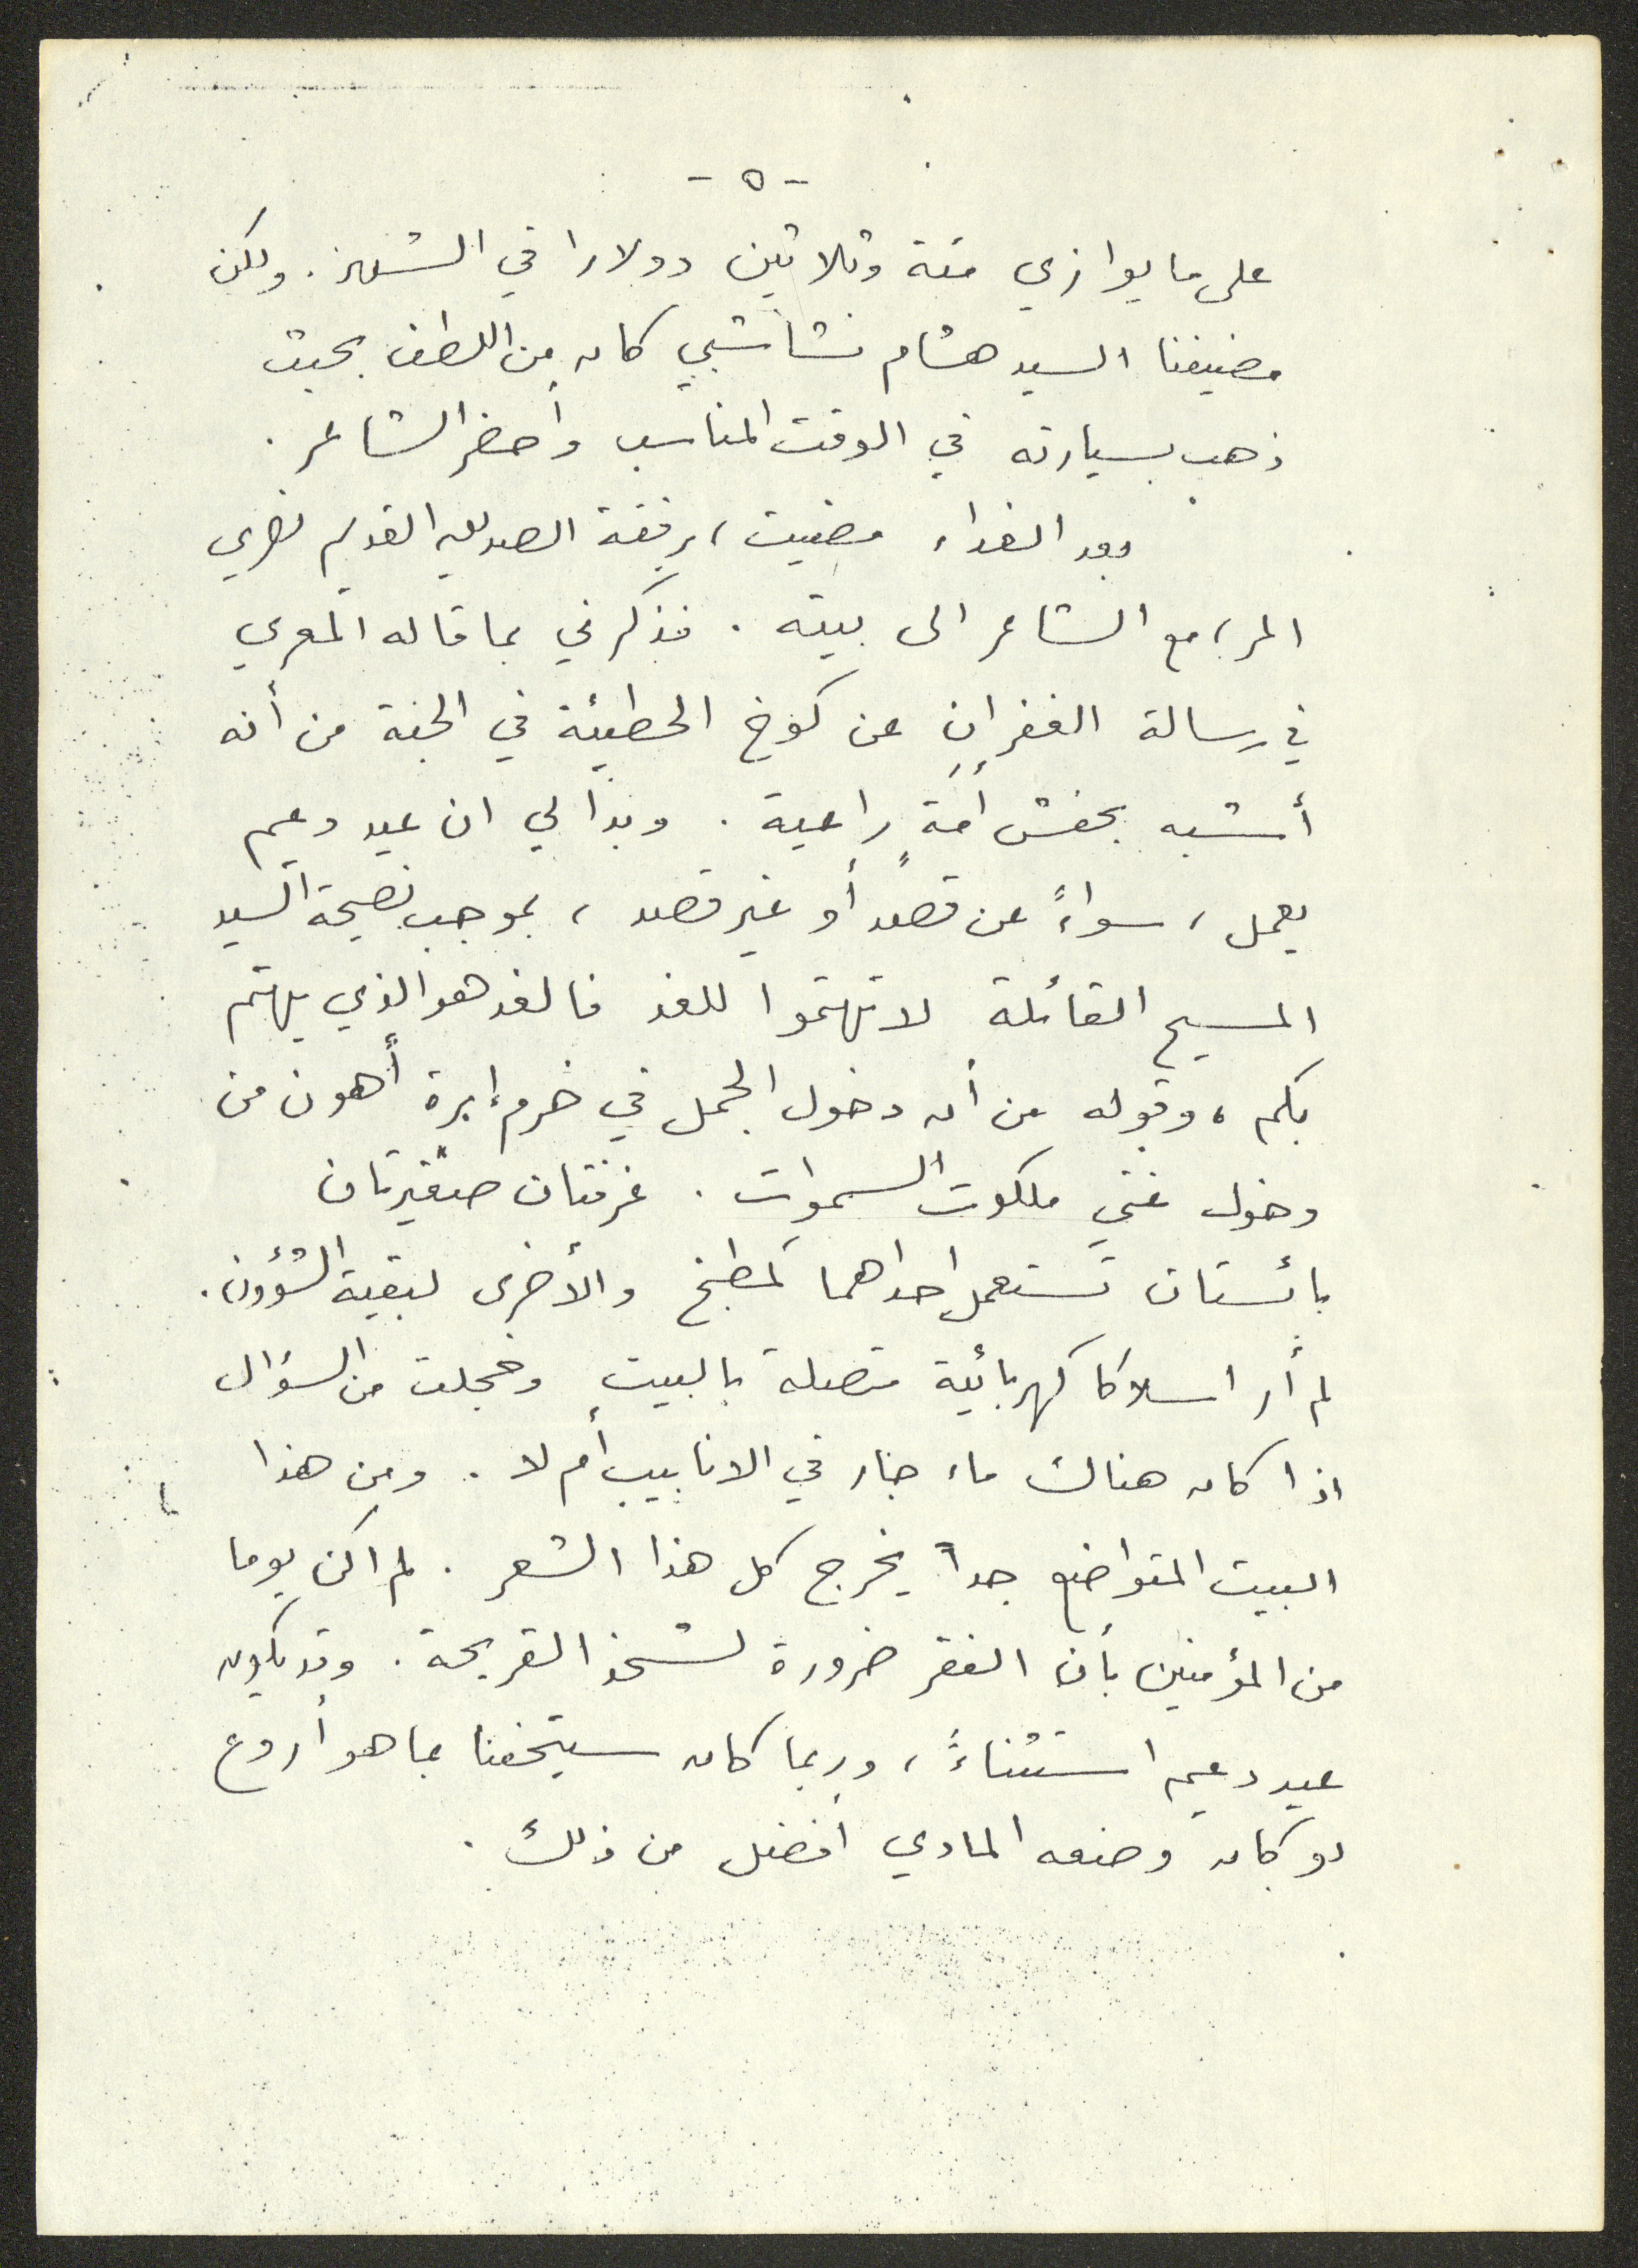 - ٥ -
على ما يوازي مئة وثلاثين دولارا في الشهر. ولكن
مضيفنا السيد هشام نشاشيبي كان من اللطف بحيث
ذهب بسيارته في الوقت المناسب وأحضر الشاعر.
وبعد الغداء مضيت، برفقة الصديق القديم نصري
المر، مع الشاعر الى بيته. فذكرني بما قاله المعري
في رسالة الغفران عن كوخ الحطيئة في الجنة من أنه
أشبه بحفش أمَةٍ راعية. وبدا لي ان عيد دعيم
يعمل، سواءً عن قصد أو غير قصد، بموجب نصيحة السيد
المسيح القائلة لا تهتموا للغد فالغد هو الذي يهتم
بكم، وقوله من أن دخول الجمل في خرم إبرة أهون من
دخول غني ملكوت السموات. غرفتان صغيرتان
بائستان تستعمل احداهما كمطبخ والأخرى لبقية الشؤون.
لم أر اسلاكا كهربائية متصلة بالبيت وخجلت من السؤال
اذا كان هناك ماء جار في الانابيب أم لا. ومن هذا
البيت المتواضع جداً يخرج كل هذا الشعر. لم اكن يوما
من المؤمنين بأن الفقر ضرورة لشحذ القريحة. وقد يكون
عيد دعيم استثناءً، وربما كان سيتحفنا بما هو أروع
لو كان وضعه المادي أفضل من ذلك.